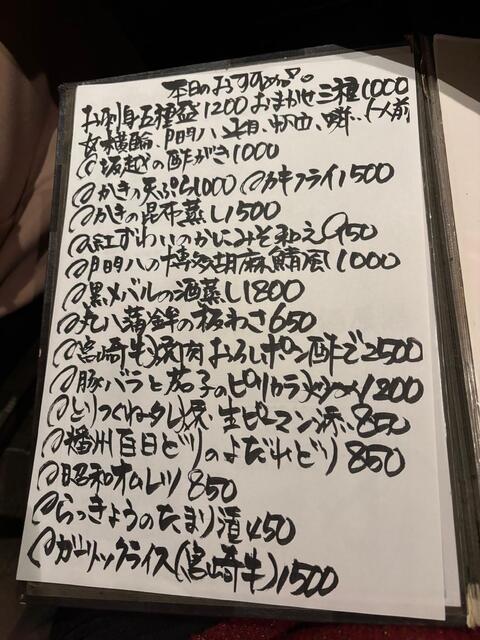 本日のおすすめ
お刺身五種盛1200 おまかせ三種1000
横輪、門八、 一人前
坂越の酢がき1000
かきの天ぷら1000 カキフライ1500
かきの昆布蒸し1500
紅ずわいのかにみそ和え950
門八の博多胡麻鯖風1000
黒メバルの酒蒸し1800
丸八蒲鉾の板わさ650
宮崎牛焼肉おろしポン酢で2500
豚バラと茄子のピリカラ 1200
とりつくねタレ焼・生ピーマン添え850
播州百日どりのよだれどり850
昭和オムレツ850
らっきょうのたまり漬450
ガーリックライス(宮崎牛)1500